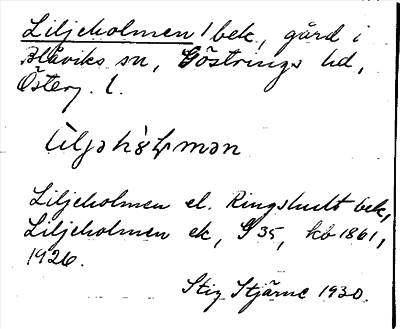 Liljeholmen / bek, gård i
Blåviks sn, Göstrings hd,
Österg. l.
Liljeholmen el. Ringshult bek,
Liljeholmen ek, G 35, kb 1861,
1926.
Stig Stjärne 1930.